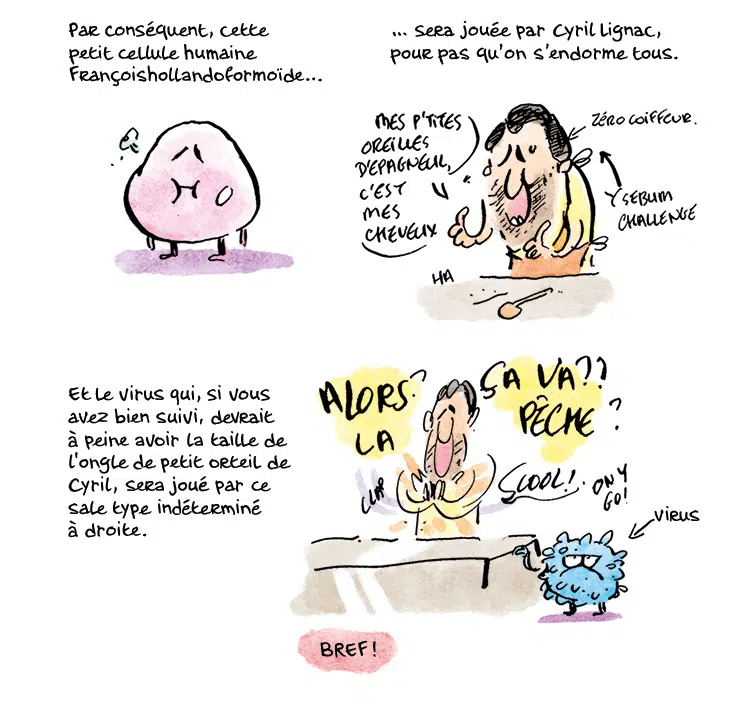 Par conséquent, cette
petit cellule humaine
Françoishollandoformoïde...
... sera jouée par Cyril Lignac,
pour pas qu'on s'endorme tous.
MES P'TITES
OREILLES
D'EPAGNEUL,
C'EST
MES
CHEVEUX
ZÉRO COIFFEUR.
SEBUM
CHALLENGE
HA
Et le virus qui, si vous
avez bien suivi, devrait
à peine avoir la taille de
l'ongle de petit orteil de
Cyril, sera joué par ce
sale type indéterminé
à droite.
ALORS?
LA
ÇA VA??
PÊCHE?
CLAP
COOL!
ON Y
GO!
virus
BREF!